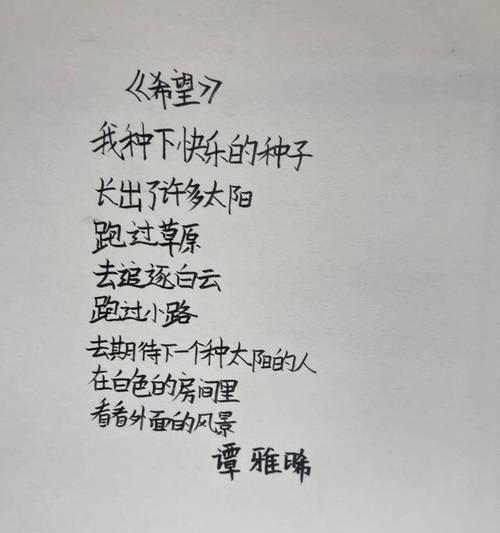 《希望》
我种下快乐的种子
长出了许多太阳
跑过草原
去追逐白云
跑过小路
去期待下一个种太阳的人
在白色的房间里
看看外面的风景
谭雅晞